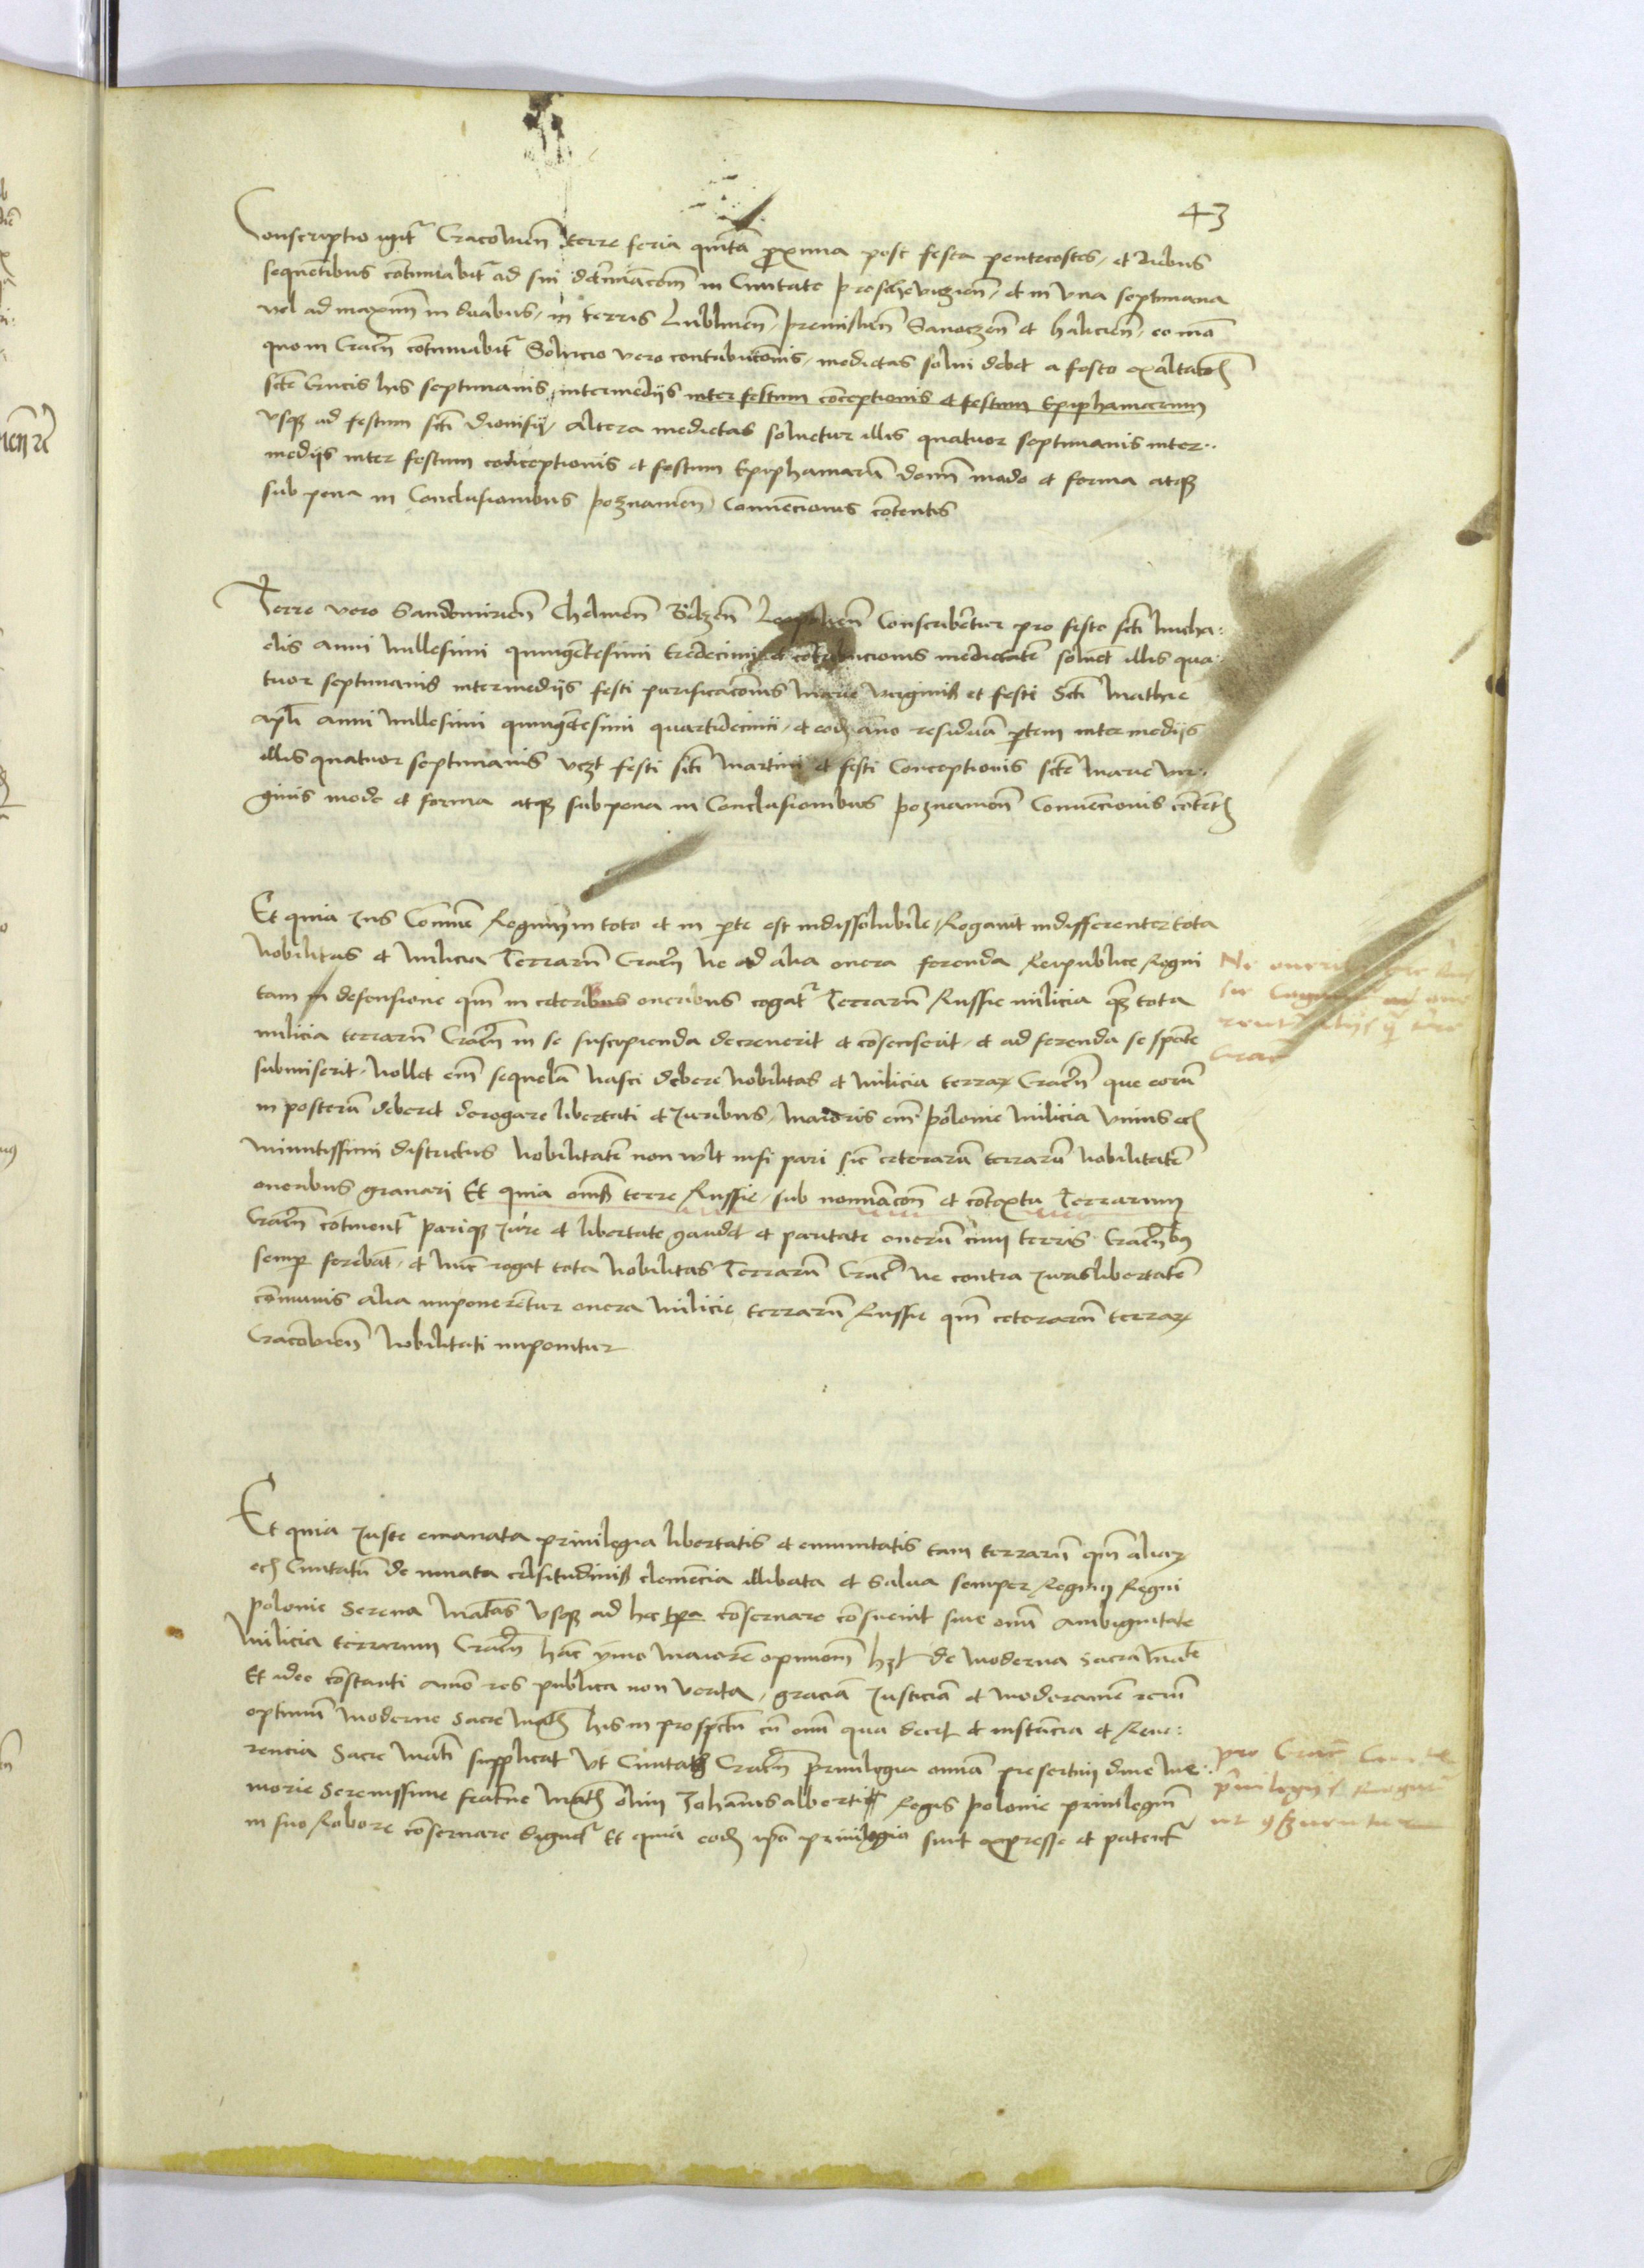 43
Conscriptio igit Cracovien terre feria quinta proxima post festa pentecostes, et diebus
sequentibus continuabit ad sui determinacom in Civitate proschovizien, et in una septimana
vel ad maximum in duabus, in terris Lublinen, premislien Sanoczen et halicien, eo modo
quo in Cracn continuabit Solucio vero contribucionis, medietas solui debet a festo exaltacois
scte Crucis his septimanis intermedijs inter festum conceptionis et festum Epiphaniarum
vsq ad festum scti dionisij, altera medietas soluetur illis quatuor septimanis inter
medijs inter festum conceptionis et festum Epiphaniaru domi modo et forma atq
sub pena in Conclusionibus poznanien Convencionis contentis
Terre vero Sandomirien Chelmen Belzen Leopolien Conscribentur pro festo scti Micha
elis anni millesimi quingentesimi tredecimi et contribucionis medietate soluet illis qua
tuor septimanis intermedijs festi purificacionis Marie virginis et festi Scti Mathie
apli anni millesimi quingetesimi quartidecimi, et eode anno residua ptem intermedijs
illis quatuor septimanis vczt festi scti Martini et festi Conceptionis scte Marie vir
ginis modo et forma atq sub pena in Conclusionibus poznanien Convencionis contetis
Et quia Jus Comune Regnum in toto et in pte est indissolubile, Rogauit indifferenter tota
Nobilitas et Milicia Terraru Cracn Ne ad alia onera ferenda Reipublice Regni
tam in defensione qm in ceteris oneribus cogat Terraru Russie milicia qz tota
milicia terraru Cracn in se suscipienda decreverit et consenserit, et ad ferenda se sponte
submiserit, Nollet em sequela Nasci debere Nobilitas et Milicia terrar Cracn que eoru
in posteru deberet derogare libertati et Juribus, Maioris em polonie Milicia vnius ecz
minutissimi districtus Nobilitate non vult nisi pari sic ceteraru terraru Nobilitate
oneribus gravari Et quia omes terre Russie, sub nominacom et contextu Terrarum
Cracn continent pariq Jure et libertate gaudet et paritate oneru cum terris Cracnbus
semp ferebat, et nuc rogat tota Nobilitas Terraru Cracn Ne contra Juris libertate
comunis alia imponerentur onera Milicie terraru Russie qm ceteraru terrar
Cracovien Nobilitati imponitur
Et quia Juste emanata privilegia libertatis et emunitatis tam terraru qm aliar
ecz Civitatu de innata celsitudinis clemecia illibata et Salva semper Regnum Regni
polonie Serena Matas vsq ad hec tpa conservare consuevit sine omi ambiguitate
Milicia terrarum Cracn hanc ymo Maiore opiniom hzt de Moderna Sacra Mate
Et ideo constanti animo res publica non verita, gracia Justicia et Moderamen rerum
optimu Moderne Sacre Matis his in prospectu cu omi qua decet et instancia et Reve
rencia Sacre Mati supplicat vt Civitatis Cracn privilegia omia presertim dive Me
morie Serenissime fraterne Matis olim Johannis alberti Regis polonie privilegium
in suo Robore conservare dignet Et quia eode ipso privilegio sunt expresse et patent
pro Crac
privilegijs Rogat
ut conserventur